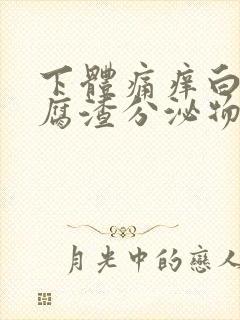 下體痛痒白
腐渣分泌物
月光中的戀人